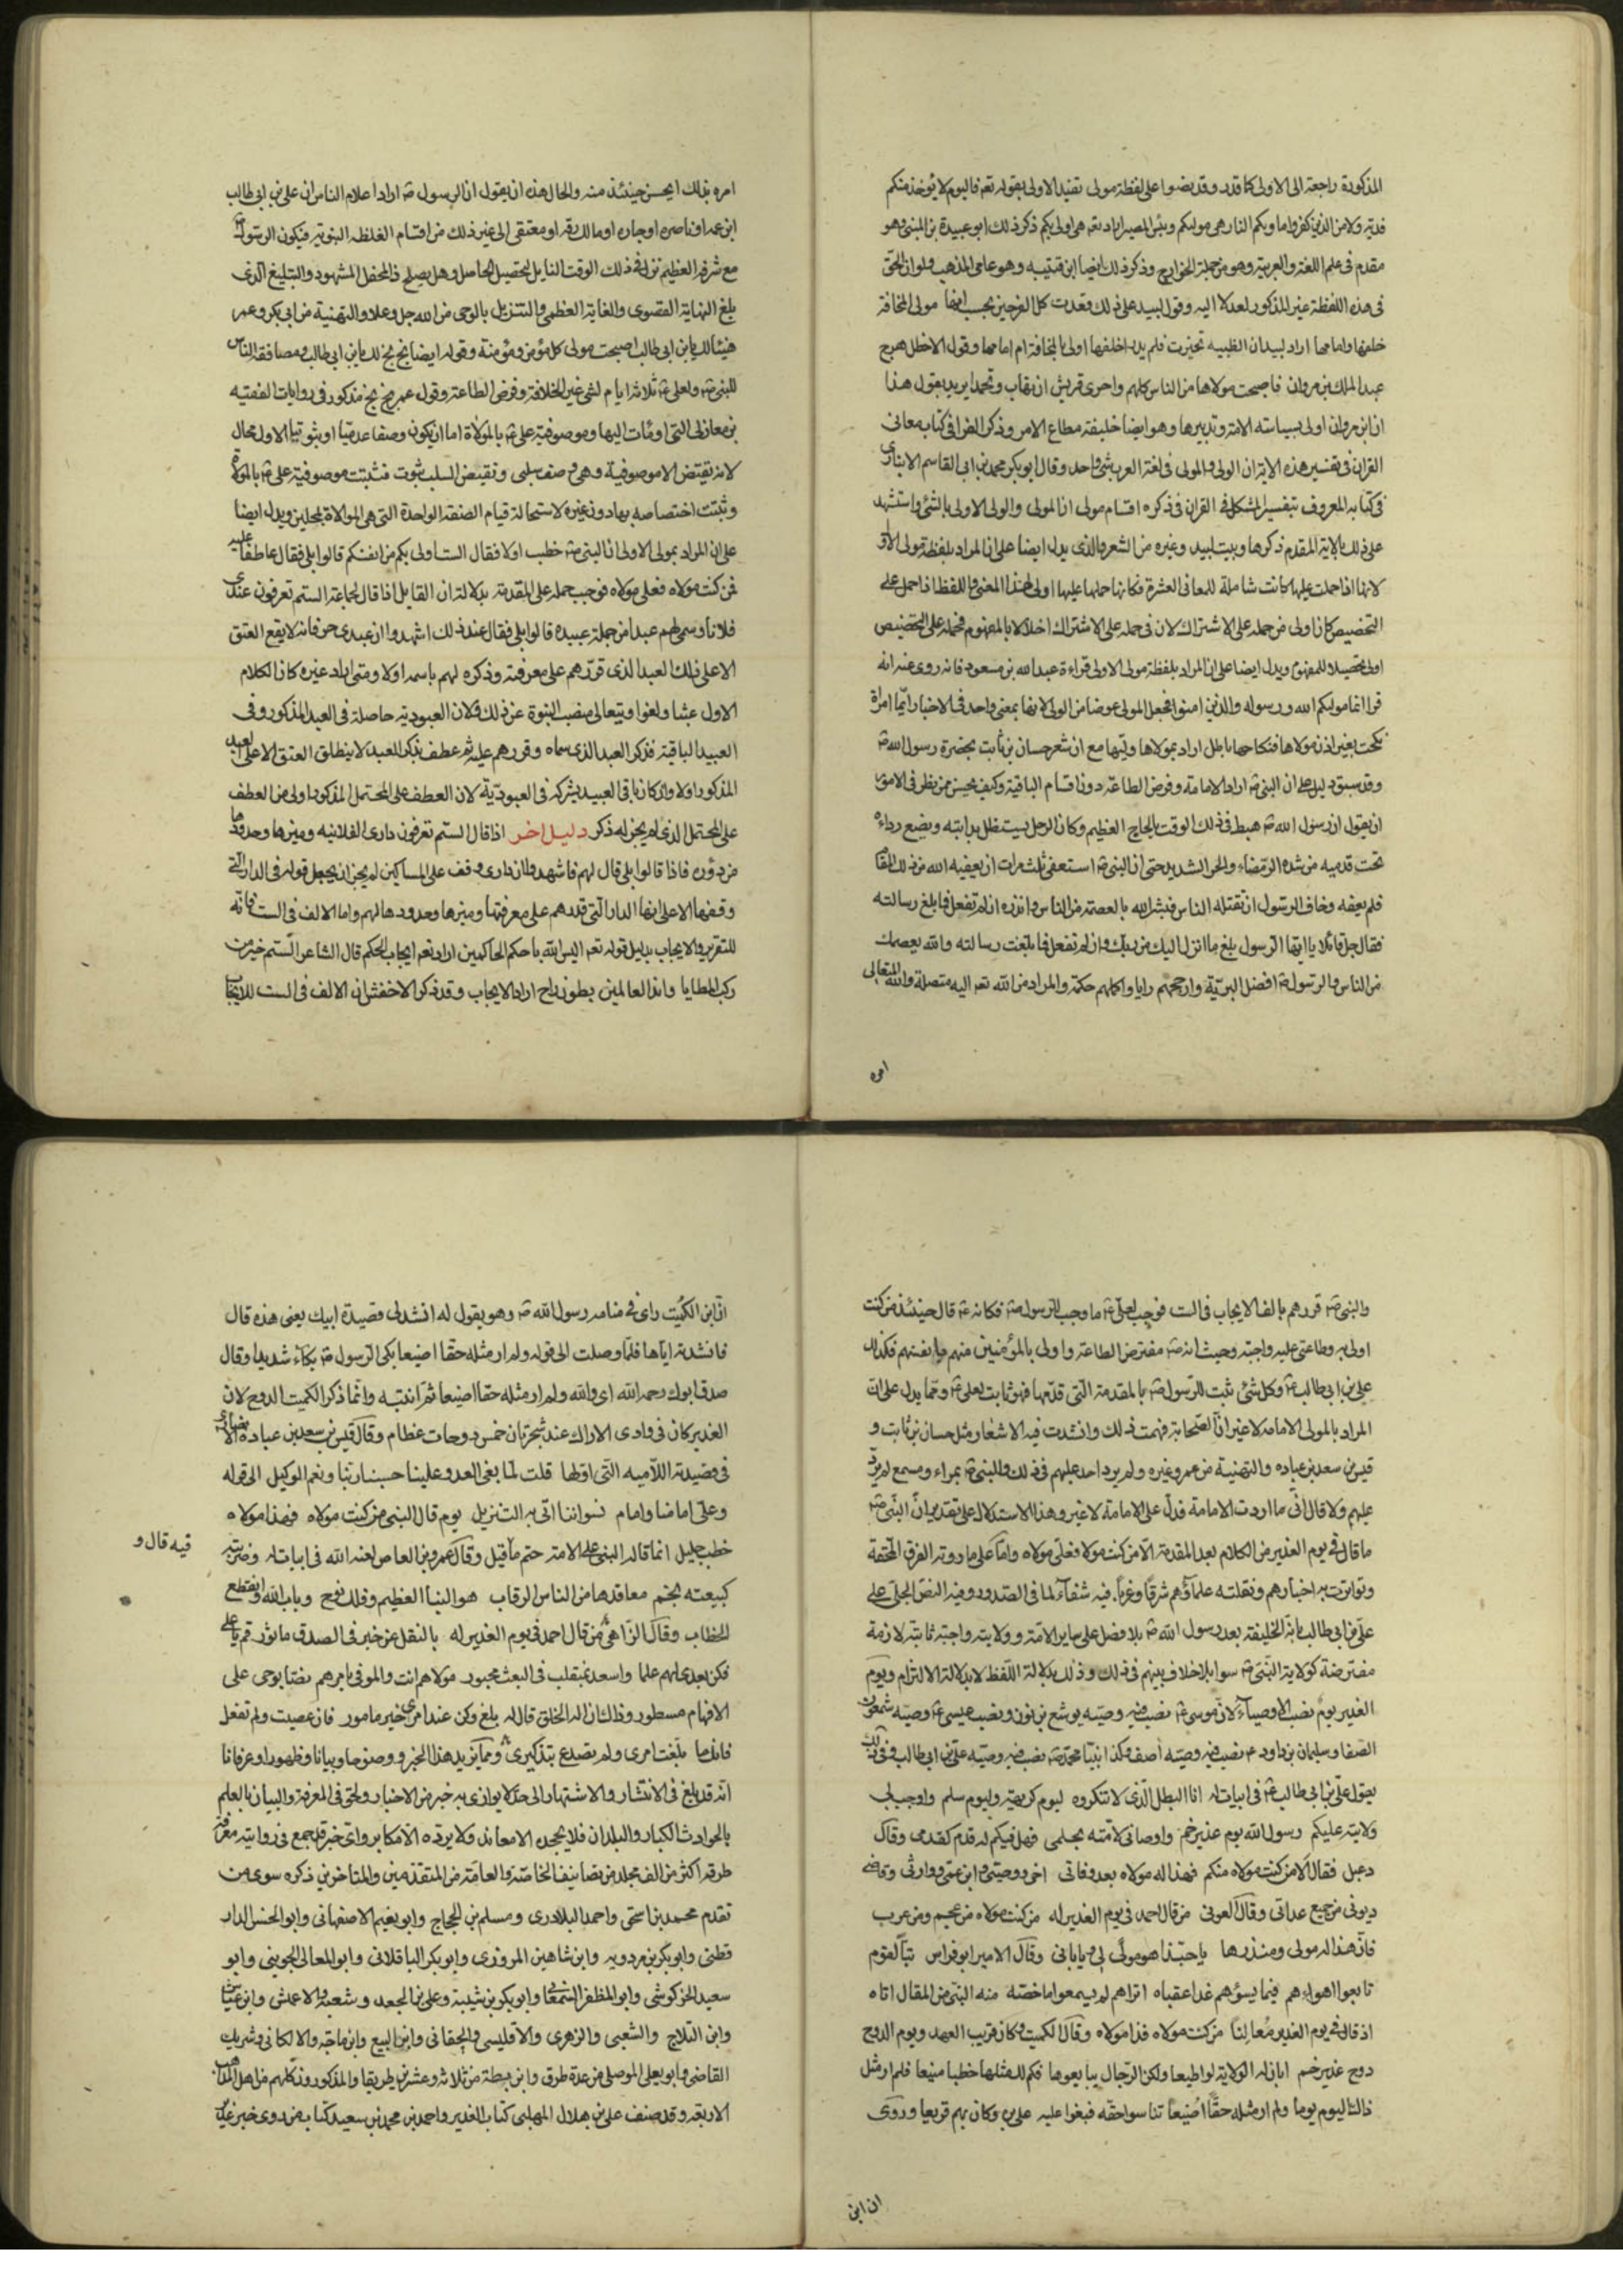 المذكورة راجعة الى الاولى كما قدر وقد نصوا على لفظة مولى تفيد الاولى بقوله تعه فاليوم لا يؤخذ منكم
فدية ولا من الذين كفروا ماويكم النار هى موليكم وبئس المصير اراد تعه هى اولى بكم ذكر ذلك ابو عبيدة بن المثنى وهو
مقدم فى علم اللغة والعربية وهو من جملة الخوارج وذكر ذلك ايضا ابن قتيبه وهو عامى المذهب ولو ان الحق
فى هذه اللفظة غير المذكور لعدلا اليه وقول لبيد على ذلك فغدت كلا الفرجين تحسب انها مولى المخافة
خلفها وامامها اراد لبيد ان الظبيه تحيرت فلم يدر اخلفها اولى بالمخافة ام امامها وقول الاخطل مدح
عبد الملك بن مروان فاصبحت مولاها من الناس كلهم واحرى قريش ان تهاب وتحمدا يريد بقول هذا
ان ابن مروان اولى بسياسته الامة وتدبيرها وهو ايضا خليفة مطاع الامر وذكر الفرا فى كتاب معانى
القران فى تفسير هذه الاية ان الولى والمولى فى لغة العرب شئ واحد وقال ابو بكر محمد بن ابى القاسم الانبارى
فى كتابه المعروف بتفسير المشكل فى القران فى ذكره اقسام مولى ان المولى والولى الاولى بالشئ واستشهد
على ذلك بالاية المقدم ذكرها وبيت لبيد وغيره من الشعر والذى يدل ايضا على ان المراد بلفظة مولى الاولى
لانها اذا حملت عليها كانت شاملة للمعانى العشرة فكانها حملها عليها اولى لهذا المعنى واللفظ اذا حمل على
التخصيص كان اولى من حمله على الاشتراك لان فى حمله على الاشتراك اخلالا بالمفهوم فحمله على التخصيص
اولى تحصيلا للمفهوم ويدل ايضا على ان المراد بلفظة مولى الاولى قراءة عبد الله بن مسعود فانه روى عنه انه
قرا انما موليكم الله ورسوله والذين امنوا فجعل المولى عوضا من الولى لانها بمعنى واحد فى الاخبار ايما امراة
نكحت بغير اذن مولاها فنكاحها باطل اراد بمولاها وليها مع ان شعر حسان بن ثابت بحضرة رسول الله ص
وقد سبق دليل على ان النبى ص اراد الامامة وفرض الطاعة دون اقسام الباقية وكيف يحسن ممن نظر فى الامور
ان يقول ان رسول الله ص هبط فى ذلك الوقت بالحاج العظيم وكان الرجل يستظل بدابته ويضع رداءه
تحت قدميه من شدة الرمضاء والحر الشديد حتى ان النبى ص استعفى ثلث مرات ان يعفيه الله من ذلك المقام
فلم يعفه وخاف الرسول ان تقتله الناس فبشر الله بالعصمة من الناس وانذره ان لم تفعل فما بلغ رسالته
فقال جل قائلا يا ايها الرسول بلغ ما انزل اليك من ربك وان لم تفعل فما بلغت رسالته والله يعصمك
من الناس والرسول ص افضل البرية وارجحهم رايا واكملهم حكمة والمراد من الله تعه اليه متصلة والله تعالى
امره
امره بذلك ايحسن حينئذ منه والحال هذه ان يقول ان الرسول ص اراد اعلام الناس ان على بن ابى طالب
ابن عمه او ناصره او جاره او مالك رقه او معتقى الى غير ذلك من اقسام الغلظه النبوتية فيكون الرسول ص
مع شرفه العظيم نزل فى ذلك الوقت النايل لتحصيل الحاصل وهل يصلح ذا لمحفل المشهود والتبليغ الذى
بلغ النهاية القصوى والغاية العظمى والتنزيل بالوحى من الله جل وعلا والتهنية من ابى بكر وعمر
هنيئا لك يا بن ابى طالب اصبحت مولى كل مؤمن ومؤمنة وقوله ايضا بخ بخ لك يا بن ابى طالب ومصافقة الناس
للنبى ص ولعلى ع ثلاثة ايام لشئ غير الخلافة وفرض الطاعة وقول عمر بخ بخ مذكور فى روايات لفقيه
بن معازلى التى اومئات اليها وموصوفية على ع بالمولاة اما ان يكون وصفا عدميا او ثبوتيا الاول محال
لانه نقيض الاموصوفية وهى وصف سلبى ونقيض السلب ثبوت فثبتت موصوفية على ع بالمولاة
وثبتت اختصاصه بها دون غيره لاستحالة قيام الصفة الواحدة التى هى الموالاة لمحلين ويدل ايضا
على ان المراد بمولى الاولى ان النبى ص خطب اولا فقال الست اولى بكم من انفسكم قالوا بلى فقال عاطفا عليه
فمن كنت مولاه فعلى مولاه فوجب حمله على المقدمة بدلالة ان القايل اذا قال لجماعة الستم تعرفون عندى
فلانا وسمى لهم عبدا من جملة عبيده قالوا بلى فقال عند ذلك اشهدوا ان عبدى حر فانه لا يقع العتق
الا على ذلك العبد الذى قررهم على معرفته وذكره لهم باسمه اولا ومتى اراد غيره كان الكلام
الاول عبثا ولغوا ويتعالى منصب النبوة عن ذلك ولان العبودية حاصلة فى العبد المذكور وفى
العبيد الباقية فذكر العبد الذى سماه وقررهم عليه ثم عطف بذكر العبد لا ينطلق العتق الا على العبد
المذكور اولا وان كان باقى العبيد يشركه فى العبودية لان العطف على المحتمل المذكور اولى من العطف
على المحتمل الذى لم يجز له ذكر دليل اخر اذا قال الستم تعرفون دارى الفلانيه وميزها وحدودها
من دوره فاذا قالوا بلى قال لهم فاشهدوا ان دارى وقف على المساكين لم يجز ان يجعل قوله فى الدار التى
وقفها الا على انها الدار التى قدرهم على معرفتها وميزها وحدودها لهم واما الالف فى الست فانه
للتقرير والايجاب بدليل قوله تعه اليس الله باحكم الحاكمين اراد تعه ايجاب الحكم قال الشاعر الستم خير من
ركب المطايا واندا العالمين بطون راح اراد الايجاب وقد ذكر الاخفش ان الالف فى الست للايجاب
والنبى ص قررهم بالف الايجاب فى الست فوجب لعلى ع ما وجب للرسول ص فكانه ع قال حينئذ من كنت
اولى به وطاعتى عليه واجبة وحيث انه ص مفترض الطاعة واولى بالمؤمنين منهم بانفسهم فكذلك
على بن ابى طالب ع وكل شئ ثبت للرسول ص بالمقدمة التى قدمها فهو ثابت لعلى ع ومما يدل على ان
المراد بالمولى الامامه لا غير ان الصحابة فهمت ذلك وانشدت فيه الاشعار مثل حسان بن ثابت و
قيس بن سعد بن عباده والتهنية من عمر وغيره ولم يرد احد عليهم فى ذلك والنبى ص بمراء ومسمع لم يرد
عليهم ولا قال انى ما اردت الامامة فدل على الامامة لا غير وهذا الاستدلال على تقدير ان النبى ص
ما قال فى يوم الغدير من الكلام بعد المقدمة الا من كنت مولاه فعلى مولاه واما على ما روته الفرق المحقة
وتواترت به اخبارهم ونقلته علماؤهم شرقا وغربا فيه شفاء لما فى الصدور وفيه النص الجلى على
على بن ابى طالب بانه الخليفة بعد رسول الله ص بلا فصل على ساير الامة وولايته واجبة ثابتة لازمة
مفترضة كولاية النبى ص سوا بلا خلاف بينهم فى ذلك وذلك بدلالة اللفظ لا بدلالة الالتزام ويوم
الغدير يوم نصب الاوصياء لان موسى ع نصب فيه وصيه يوشع بن نون ونصب عيسى ع وصيه شمعون
الصفا وسليمان بن داود ع نصب فيه وصيه اصف وكذا نبينا محمد ص نصب فيه وصيه على بن ابى طالب وفى ذلك
يقول على بن ابى طالب ع فى ابيات له انا البطل الذى لا تنكروه ليوم كريهة وليوم سلم واوجب لى
ولايته عليكم رسول الله يوم غدير خم واوصانى لامته بحلمى فهل فيكم له قدم كقدمى وقال
دعبل فقال الا من كنت مولاه منكم فهذا له مولاه بعد وفاتى اخى ووصيى وابن عمى ووارثى وقاضى
ديونى من جميع عداتى وقال العونى من قال احمد فى يوم الغدير له من كنت مولاه من عجم ومن عرب
فان هذا له مولى ومنذرها يا حبذا هو مولى لى ويا بابى وقال الامير ابو فراس تبا لقوم
تابعوا اهواءهم فيما يسؤهم غدا عقباه اتراهم لم يسمعوا ما خصه منه النبى من المقال اتاه
اذ قال فى يوم الغدير معالنا من كنت مولاه فذا مولاه وقال الكميت وكان قريب العهد ويوم الدوح
دوح غدير خم ابان له الولاية لو اطيعا ولكن الرجال يبايعوها فكم لك مثلها خطبا منيعا فلم ار مثل
ذاك اليوم يوما ولم ار مثله حقا اضيعا تناسوا حقه فبغوا عليه على وكان بهم قريعا وروى
ان ابن
ان ابن الكميت راى فى منامه رسول الله ص وهو يقول له انشدنى قصيدة ابيك يعنى هذه قال
فانشدته اياها فلما وصلت الى قوله ولم ار مثله حقا اضيعا بكى الرسول ص بكاء شديدا وقال
صدق ابوك رحمه الله اى والله ولم ار مثله حقا اضيعا ثم انتبه وانما ذكر الكميت الدوح لان
الغدير كان فى وادى الاراك عند شجرتان خمس دوحات عظام وقال قيس بن سعد بن عبادة الانصارى
فى قصيدته اللاميه التى اولها قلت لما بغى العدو علينا حسبنا ربنا ونعم الوكيل الى قوله
وعلى امامنا وامام لسوانا اتى به التنزيل يوم قال النبى من كنت مولاه فهذا مولاه
خطب جليل انما قاله النبى على الامة حتم ما قيل وقال عمرو بن العاص لعنه الله فى ابيات له وضربته
فيه قال و
كبيعته بخم معاقدها من الناس الرقاب هو النبا العظيم وفلك نوح وباب الله وانقطع
الخطاب وقال الزاهى من قال احمد فى يوم الغدير له بالنقل عن خبر فى الصدق ماثور قم يا على
فكن بعدى لهم علما واسعد بمنقلب فى البعث محبور مولاهم انت والموفى بامرهم نصا بوحى على
الافهام مسطور وذاك ان اله الخلق قال له بلغ وكن عند امرى خير مامور فان عصيت ولم تفعل
فانك ما بلغت امرى ولم تصدع بتذكيرى ومما يزيد هذا الخبر ووضوحا وبيانا وظهورا وعرفانا
انه قد بلغ فى الانتشار والاشتهار الى حد لا يوازى به خبر من الاخبار ولحق فى المعرفة والبيان بالعلم
بالحوادث الكبار والبلدان فلا يجحده الا معاند ولا يرده الا مكابر واى خبر قد جمع فى روايته معرفة
طرقه اكثر من الف مجلد من تصانيف الخاصة والعامة من المتقدمين والمتاخرين ذكره سوى من
تقدم محمد بن اسحق واحمد البلادرى ومسلم بن الحجاج وابو نعيم الاصفهانى وابو الحسن الدار
قطنى وابو بكر بن مردويه وابن شاهين المروزى وابو بكر الباقلانى وابو المعالى الجوينى وابو
سعيد الخركوشى وابو المظفر السمعانى وابو بكر بن شيبة وعلى بن الجعد وشعبة والاعمش وابن عياش
وابن الثلاج والشعبى والزهرى والاقليسى والجعانى وابن البيع وابن ماجه والالكانى وشريك
القاضى وابو يعلى الموصلى من عدة طرق وابن بطة من ثلاثة وعشرين طريقا والمذكورون كلهم من اهل المذاهب
الاربعة وقد صنف على بن هلال المهلبى كتاب الغدير واحمد بن محمد بن سعيد كتاب من روى خبر غدير